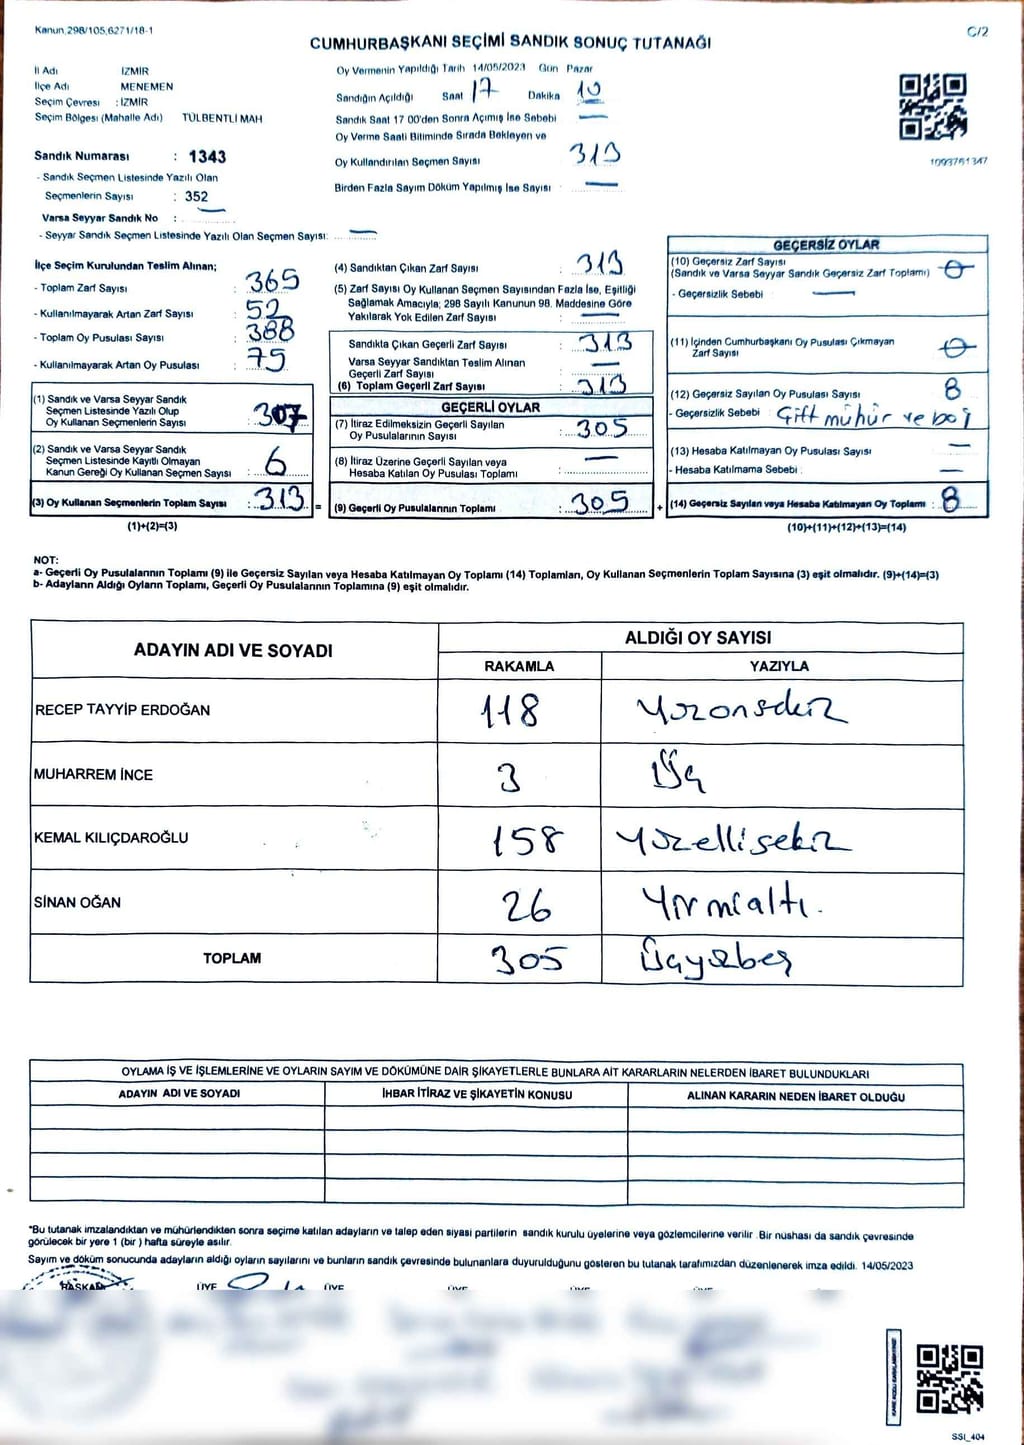 Kanun.298/105,6271/18-1
C/2
CUMHURBAŞKANI SEÇİMİ SANDIK SONUÇ TUTANAĞI
İl Adı İZMİR
İlçe Adı MENEMEN
Seçim Çevresi : İZMİR
Seçim Bölgesi (Mahalle Adı) TÜLBENTLİ MAH
Sandık Numarası : 1343
- Sandık Seçmen Listesinde Yazılı Olan
Seçmenlerin Sayısı : 352
Varsa Seyyar Sandık No : —
- Seyyar Sandık Seçmen Listesinde Yazılı Olan Seçmen Sayısı: —
Oy Vermenin Yapıldığı Tarih 14/05/2023 Gün Pazar
Sandığın Açıldığı Saat 17 Dakika 10
Sandık Saat 17 00'den Sonra Açımış İse Sebebi —
Oy Verme Saati Bitiminde Sırada Bekleyen ve
Oy Kullandırılan Seçmen Sayısı 313
Birden Fazla Sayım Döküm Yapılmış İse Sayısı : —
1093761347
İlçe Seçim Kurulundan Teslim Alınan;
- Toplam Zarf Sayısı : 365
- Kullanılmayarak Artan Zarf Sayısı : 52
- Toplam Oy Pusulası Sayısı : 388
- Kullanılmayarak Artan Oy Pusulası : 75
(1) Sandık ve Varsa Seyyar Sandık
Seçmen Listesinde Yazılı Olup
Oy Kullanan Seçmenlerin Sayısı : 307
(2) Sandık ve Varsa Seyyar Sandık
Seçmen Listesinde Kayıtlı Olmayan
Kanun Gereği Oy Kullanan Seçmen Sayısı : 6
(3) Oy Kullanan Seçmenlerin Toplam Sayısı : 313 =
(1)+(2)=(3)
(4) Sandıktan Çıkan Zarf Sayısı : 313
(5) Zarf Sayısı Oy Kullanan Seçmen Sayısından Fazla İse, Eşitliği
Sağlamak Amacıyla; 298 Sayılı Kanunun 98. Maddesine Göre
Yakılarak Yok Edilen Zarf Sayısı : —
Sandıkta Çıkan Geçerli Zarf Sayısı : 313
Varsa Seyyar Sandıktan Teslim Alınan
Geçerli Zarf Sayısı : —
(6) Toplam Geçerli Zarf Sayısı : 313
GEÇERLİ OYLAR
(7) İtiraz Edilmeksizin Geçerli Sayılan
Oy Pusulalarının Sayısı : 305
(8) İtiraz Üzerine Geçerli Sayılan veya
Hesaba Katılan Oy Pusulası Toplamı : —
(9) Geçerli Oy Pusulalarının Toplamı : 305 +
GEÇERSİZ OYLAR
(10) Geçersiz Zarf Sayısı
(Sandık ve Varsa Seyyar Sandık Geçersiz Zarf Toplamı) : 0
- Geçersizlik Sebebi : —
(11) İçinden Cumhurbaşkanı Oy Pusulası Çıkmayan
Zarf Sayısı : 0
(12) Geçersiz Sayılan Oy Pusulası Sayısı : 8
- Geçersizlik Sebebi : Çift mühür ve boş
(13) Hesaba Katılmayan Oy Pusulası Sayısı : —
- Hesaba Katılmama Sebebi : —
(14) Geçersiz Sayılan veya Hesaba Katılmayan Oy Toplamı : 8
(10)+(11)+(12)+(13)=(14)
NOT:
a- Geçerli Oy Pusulalarının Toplamı (9) ile Geçersiz Sayılan veya Hesaba Katılmayan Oy Toplamı (14) Toplamları, Oy Kullanan Seçmenlerin Toplam Sayısına (3) eşit olmalıdır. (9)+(14)=(3)
b- Adayların Aldığı Oyların Toplamı, Geçerli Oy Pusulalarının Toplamına (9) eşit olmalıdır.
ADAYIN ADI VE SOYADI
ALDIĞI OY SAYISI
RAKAMLA YAZIYLA
RECEP TAYYİP ERDOĞAN 118 Yüzonsekiz
MUHARREM İNCE 3 Üç
KEMAL KILIÇDAROĞLU 158 Yüzellisekiz
SİNAN OĞAN 26 Yirmialtı.
TOPLAM 305 Üçyüzbeş
OYLAMA İŞ VE İŞLEMLERİNE VE OYLARIN SAYIM VE DÖKÜMÜNE DAİR ŞİKAYETLERLE BUNLARA AİT KARARLARIN NELERDEN İBARET BULUNDUKLARI
ADAYIN ADI VE SOYADI İHBAR İTİRAZ VE ŞİKAYETİN KONUSU ALINAN KARARIN NEDEN İBARET OLDUĞU
*Bu tutanak imzalandıktan ve mühürlendikten sonra seçime katılan adayların ve talep eden siyasi partilerin sandık kurulu üyelerine veya gözlemcilerine verilir. Bir nüshası da sandık çevresinde
görülecek bir yere 1 (bir) hafta süreyle asılır.
Sayım ve döküm sonucunda adayların aldığı oyların sayılarını ve bunların sandık çevresinde bulunanlara duyurulduğunu gösteren bu tutanak tarafımızdan düzenlenerek imza edildi. 14/05/2023
BAŞKAN ÜYE ÜYE ÜYE ÜYE ÜYE
SSİ_404